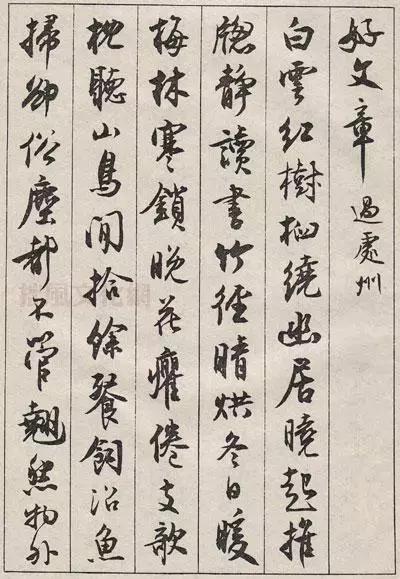 好文章 過處州
白雲紅樹相繞幽居曉起推
窗靜讀書竹徑晴烘冬日暖
梅林寒鎖晚花癯倦支欹
枕聽山鳥閒拾餘餐飼沼魚
掃卻俗塵都不管翹然物外